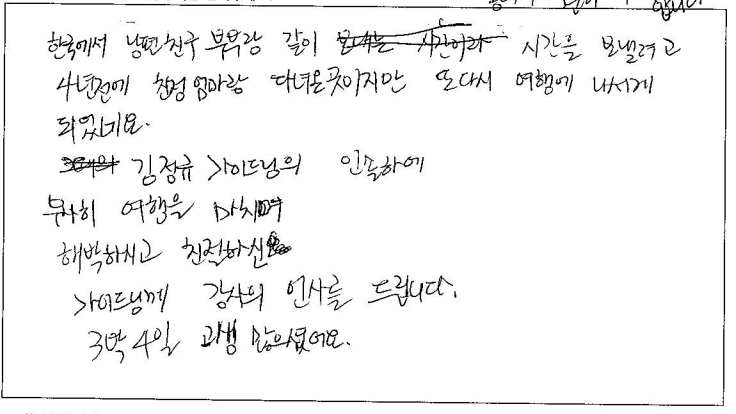 한국에서 남편친구 부부랑 같이 시간을 보낼려고
4년전에 친정엄마랑 다녀온곳이지만 또다시 여행에 나서게
되었네요.
김정류 가이드님의 인솔하에
무사히 여행을 마치며
해박하시고 친절하신
가이드님께 감사의 인사를 드립니다.
3박 4일 고생 많으셨어요.